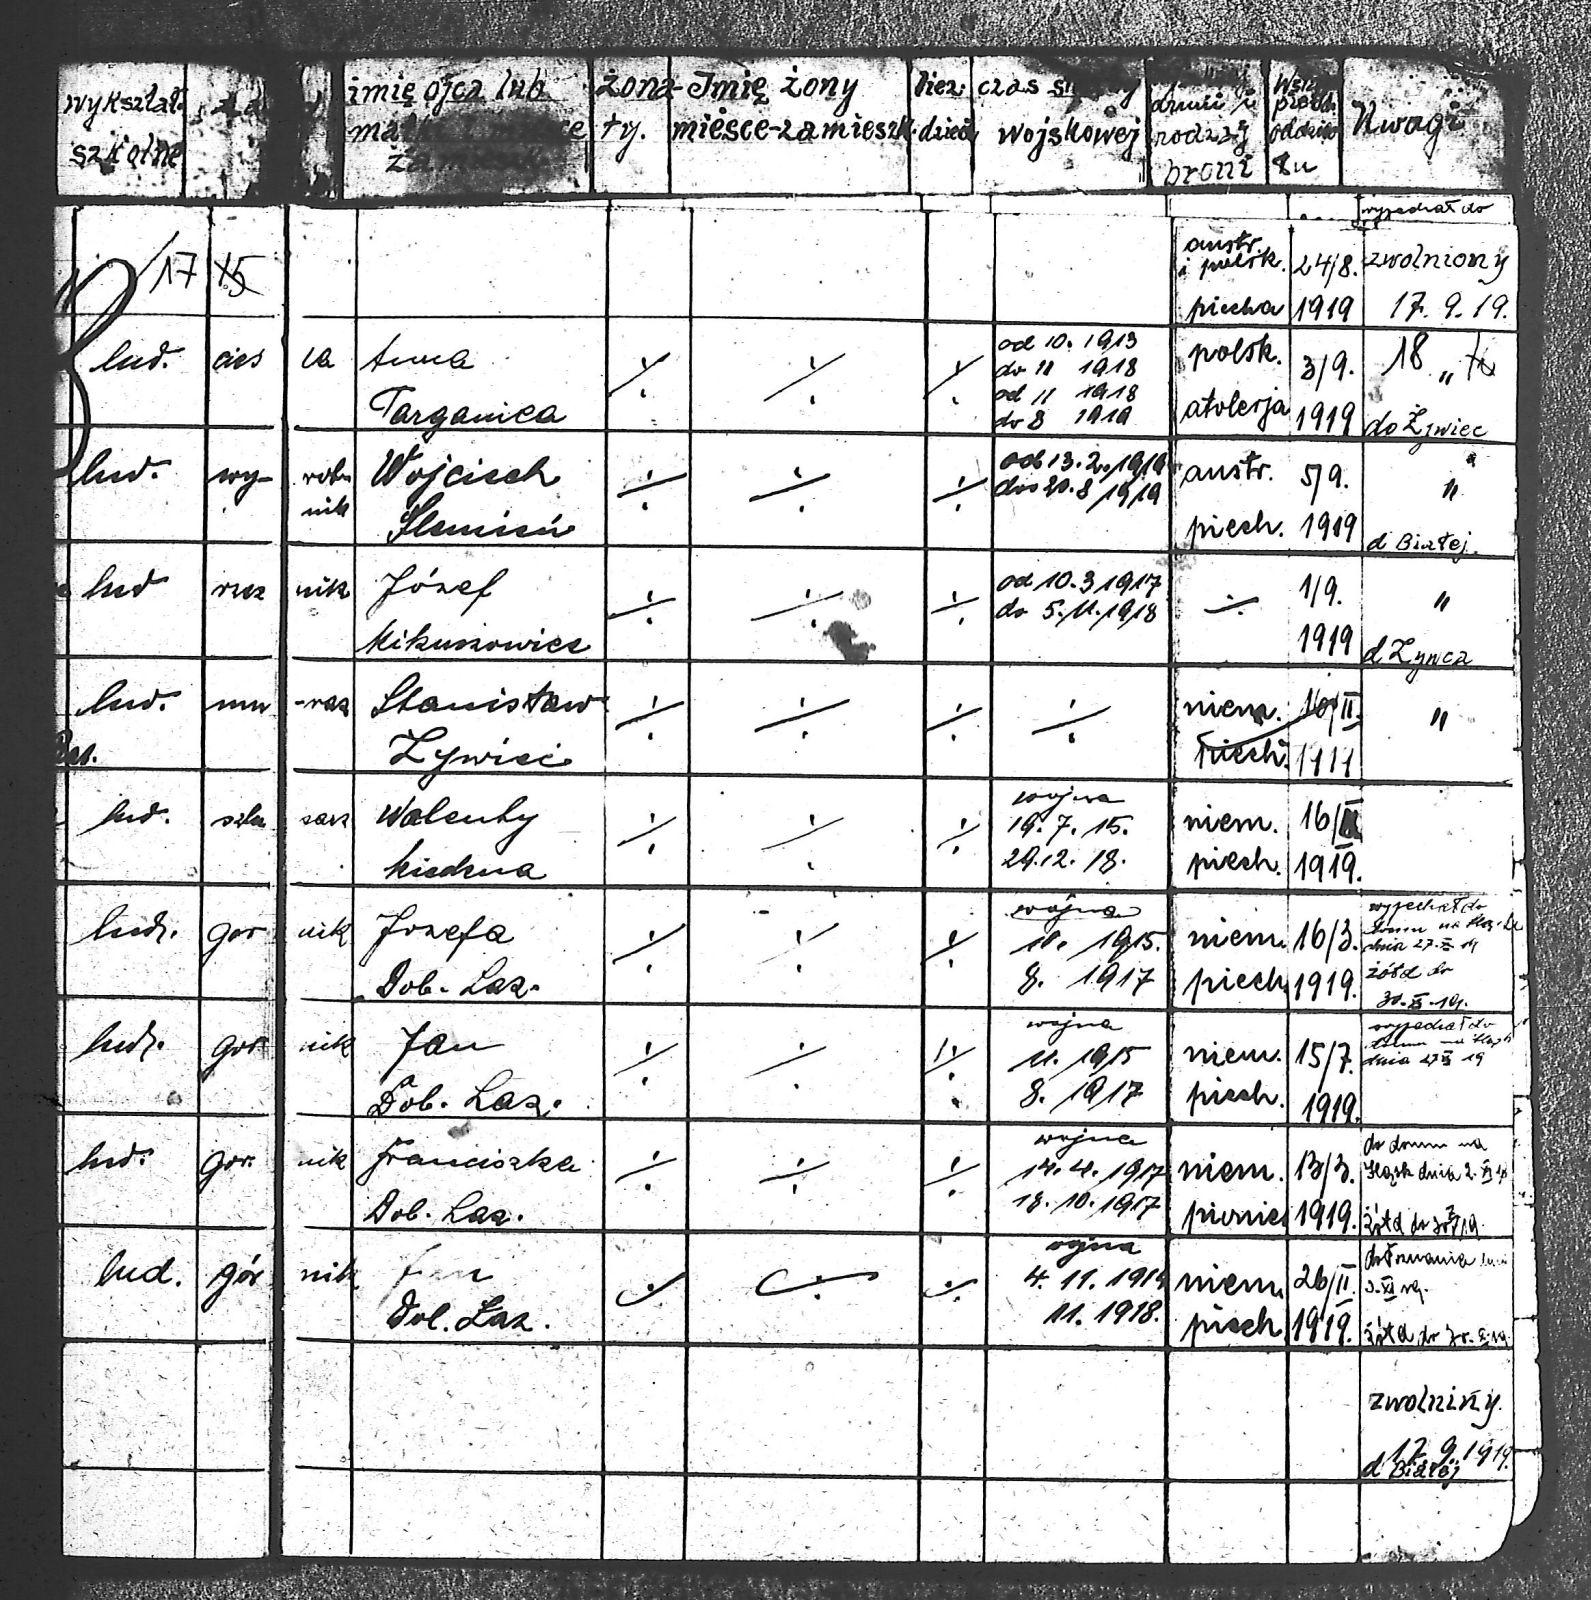 wykształ. szkolne
imię ojca lub
żona-ty.
Imię żony
miejsce zamieszk.
licz. dzieci
czas
wojskowej
armii i rodzaj broni
Uwagi
wyjechał do
17 15
austr. i polsk. piecha
24/8. 1919
zwolniony
17. 9. 19.
lud. cies la
Anna
Targanica
od 10. 1913
do 11 1918
od 11 1918
do 8 1919
polsk.
3/9. 1919
18 „
do Żywiec
lud. wy- robnik
Wojciech
Ślemień
od 13. 2. 1919
do 20. 8 1919
austr. piech.
5/9. 1919
"
d Białej.
lud rzez nik
Józef
od 10. 3 1917.
do 5. 11. 1918
1/9. 1919
"
d Żywca
lud. mu -raz
Stanisław
Żywiec
niem. piech.
"
lud. slu sarz
Walenty
wojna
19. 7. 15.
29.12. 18.
niem. piech.
16/ 1919.
lud. gor nik
Józefa
Dob. Laz.
wojna
11. 1915.
8. 1917
niem. piech.
16/3. 1919.
wyjechał do
domu na
dnia 27. 19
żółd do
lud. gor nik
Jan
Dob. Laz.
wojna
11. 1915
8. 1917
niem. piech.
15/7. 1919.
wyjechał do
domu na
dnia
lud. gor. nik
Franciszka
Dob. Laz.
wojna
14. 4. 1917
18. 10. 1917
niem.
13/3. 1919.
do domu na
Śląsk dnia 2.
żołd do
lud. gór nik
Dob. Laz.
wojna
4. 11. 1914
11. 1918.
niem. piech.
26/II. 1919.
żołd do
zwolniny.
17. 9. 1919.
d Białej